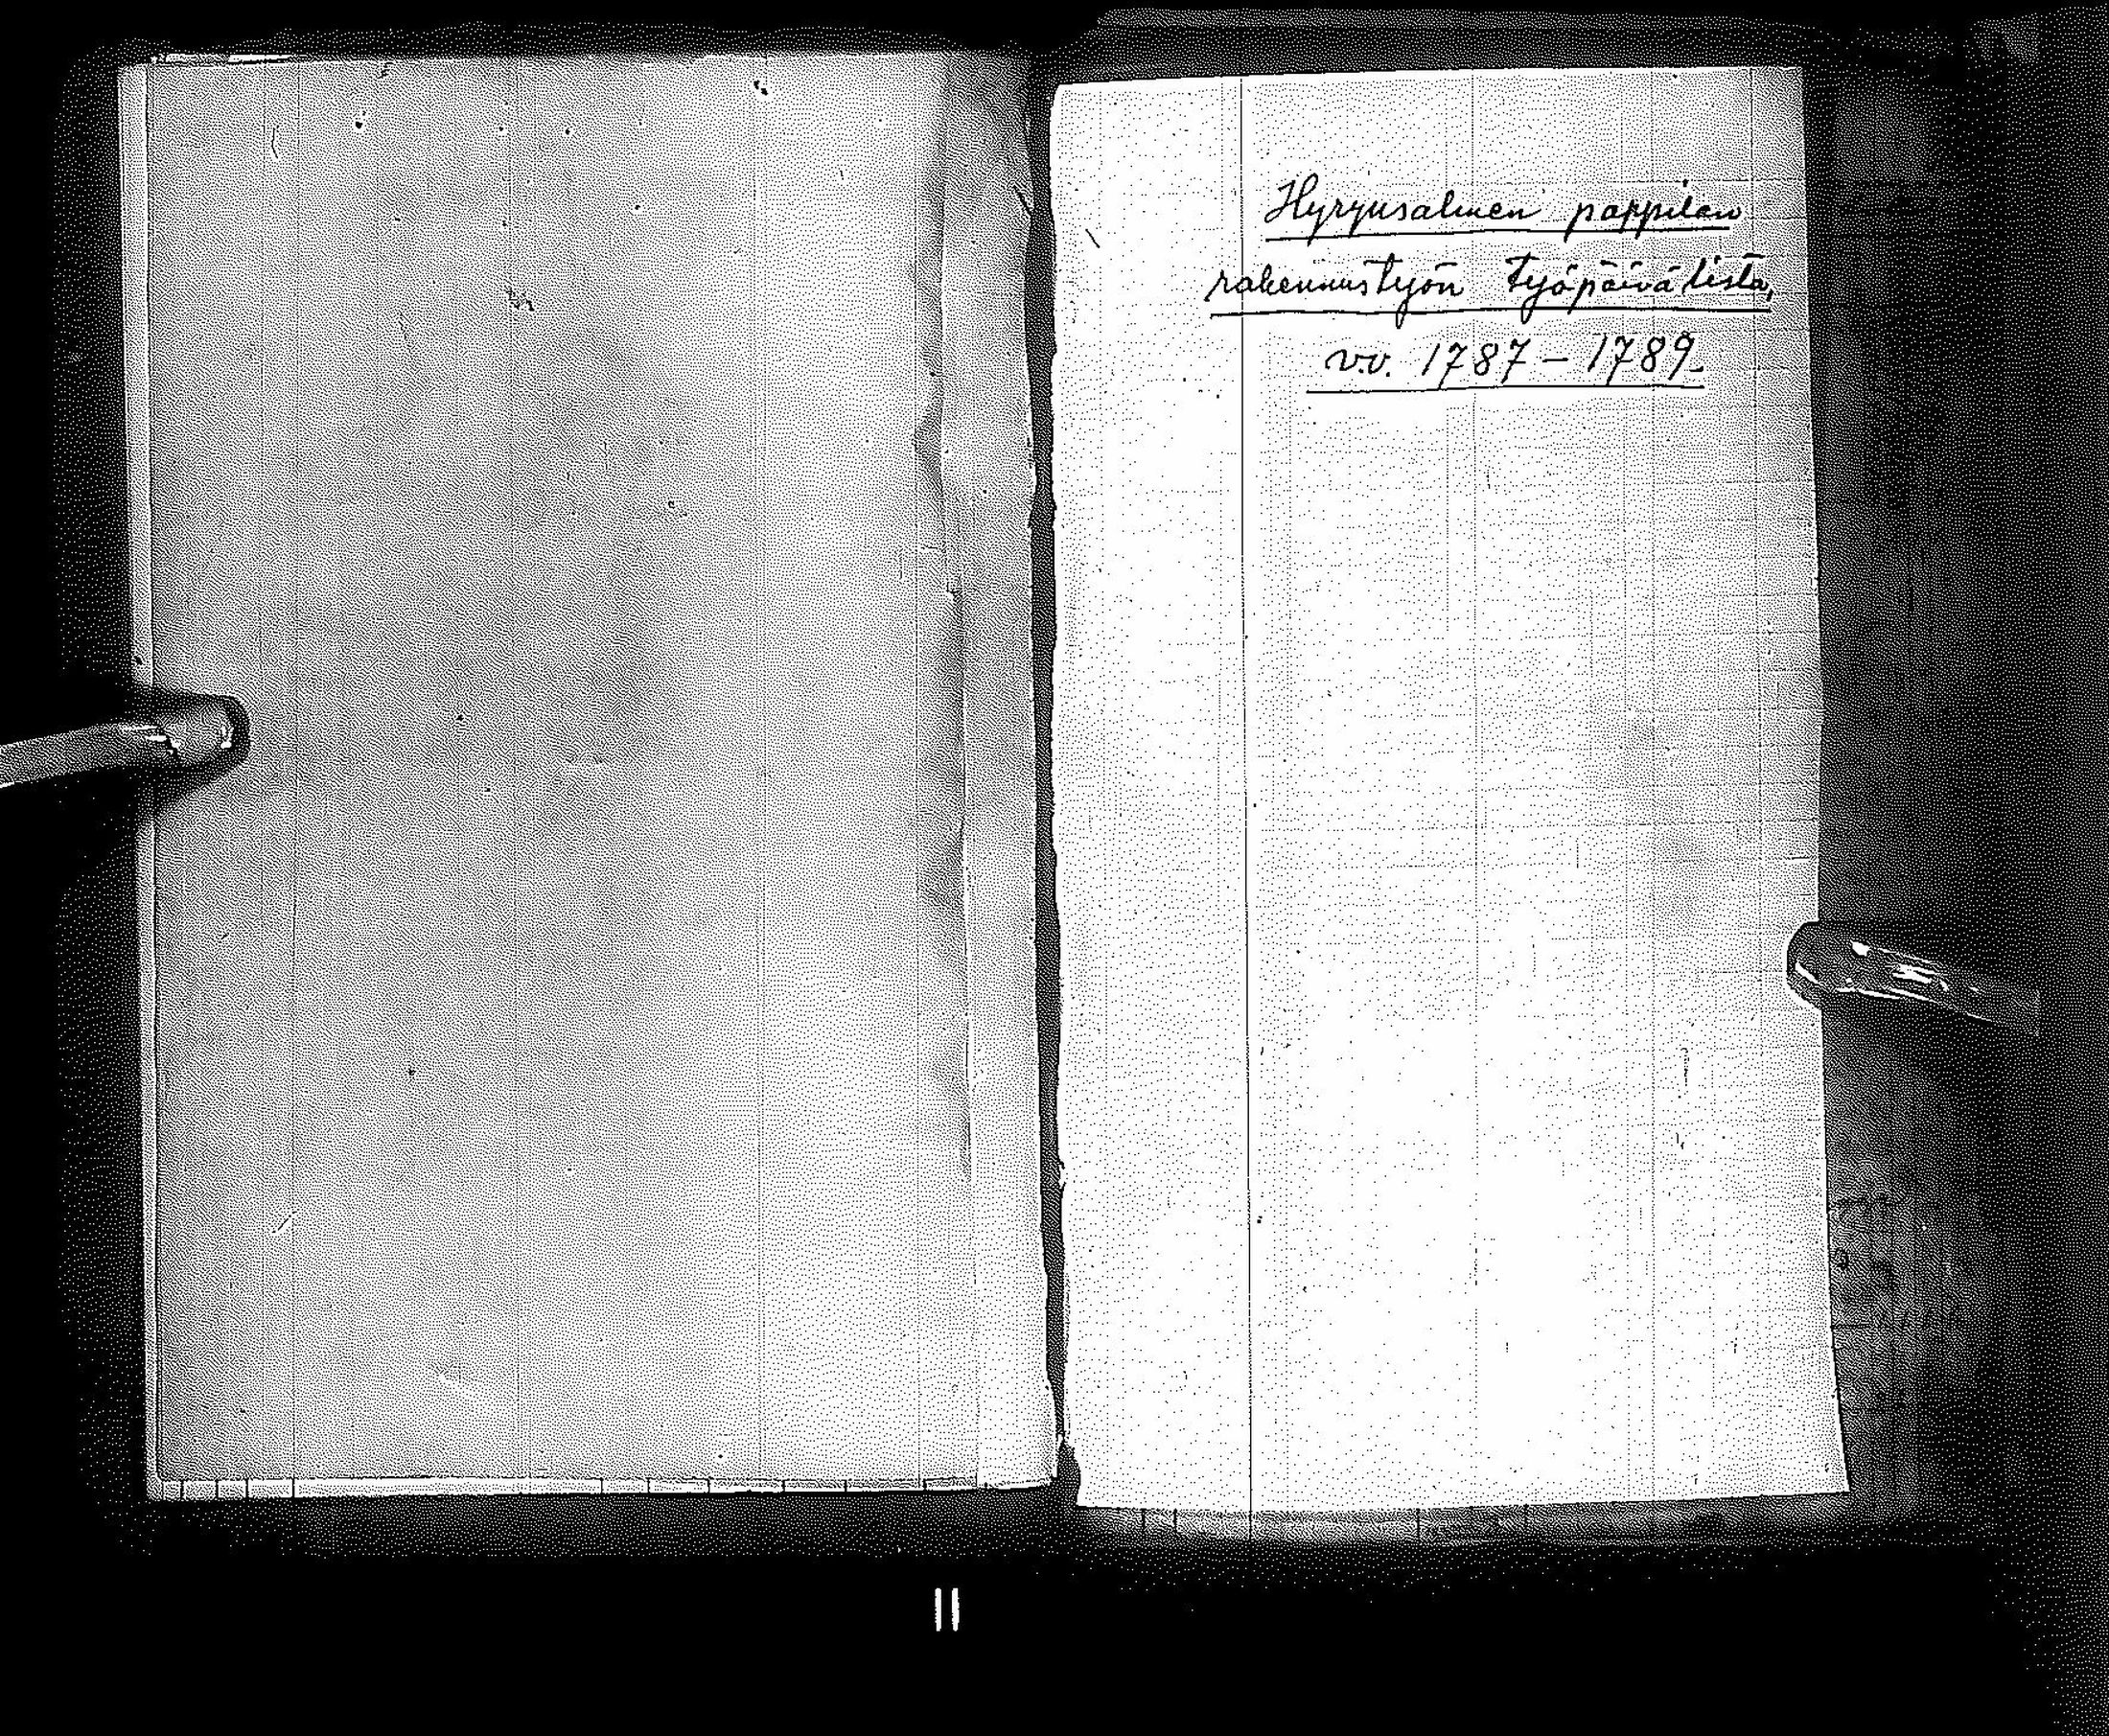 Hyrynsalmen pappilan
rakennustyön työpäivälista,
v.v. 1787–1789.
11